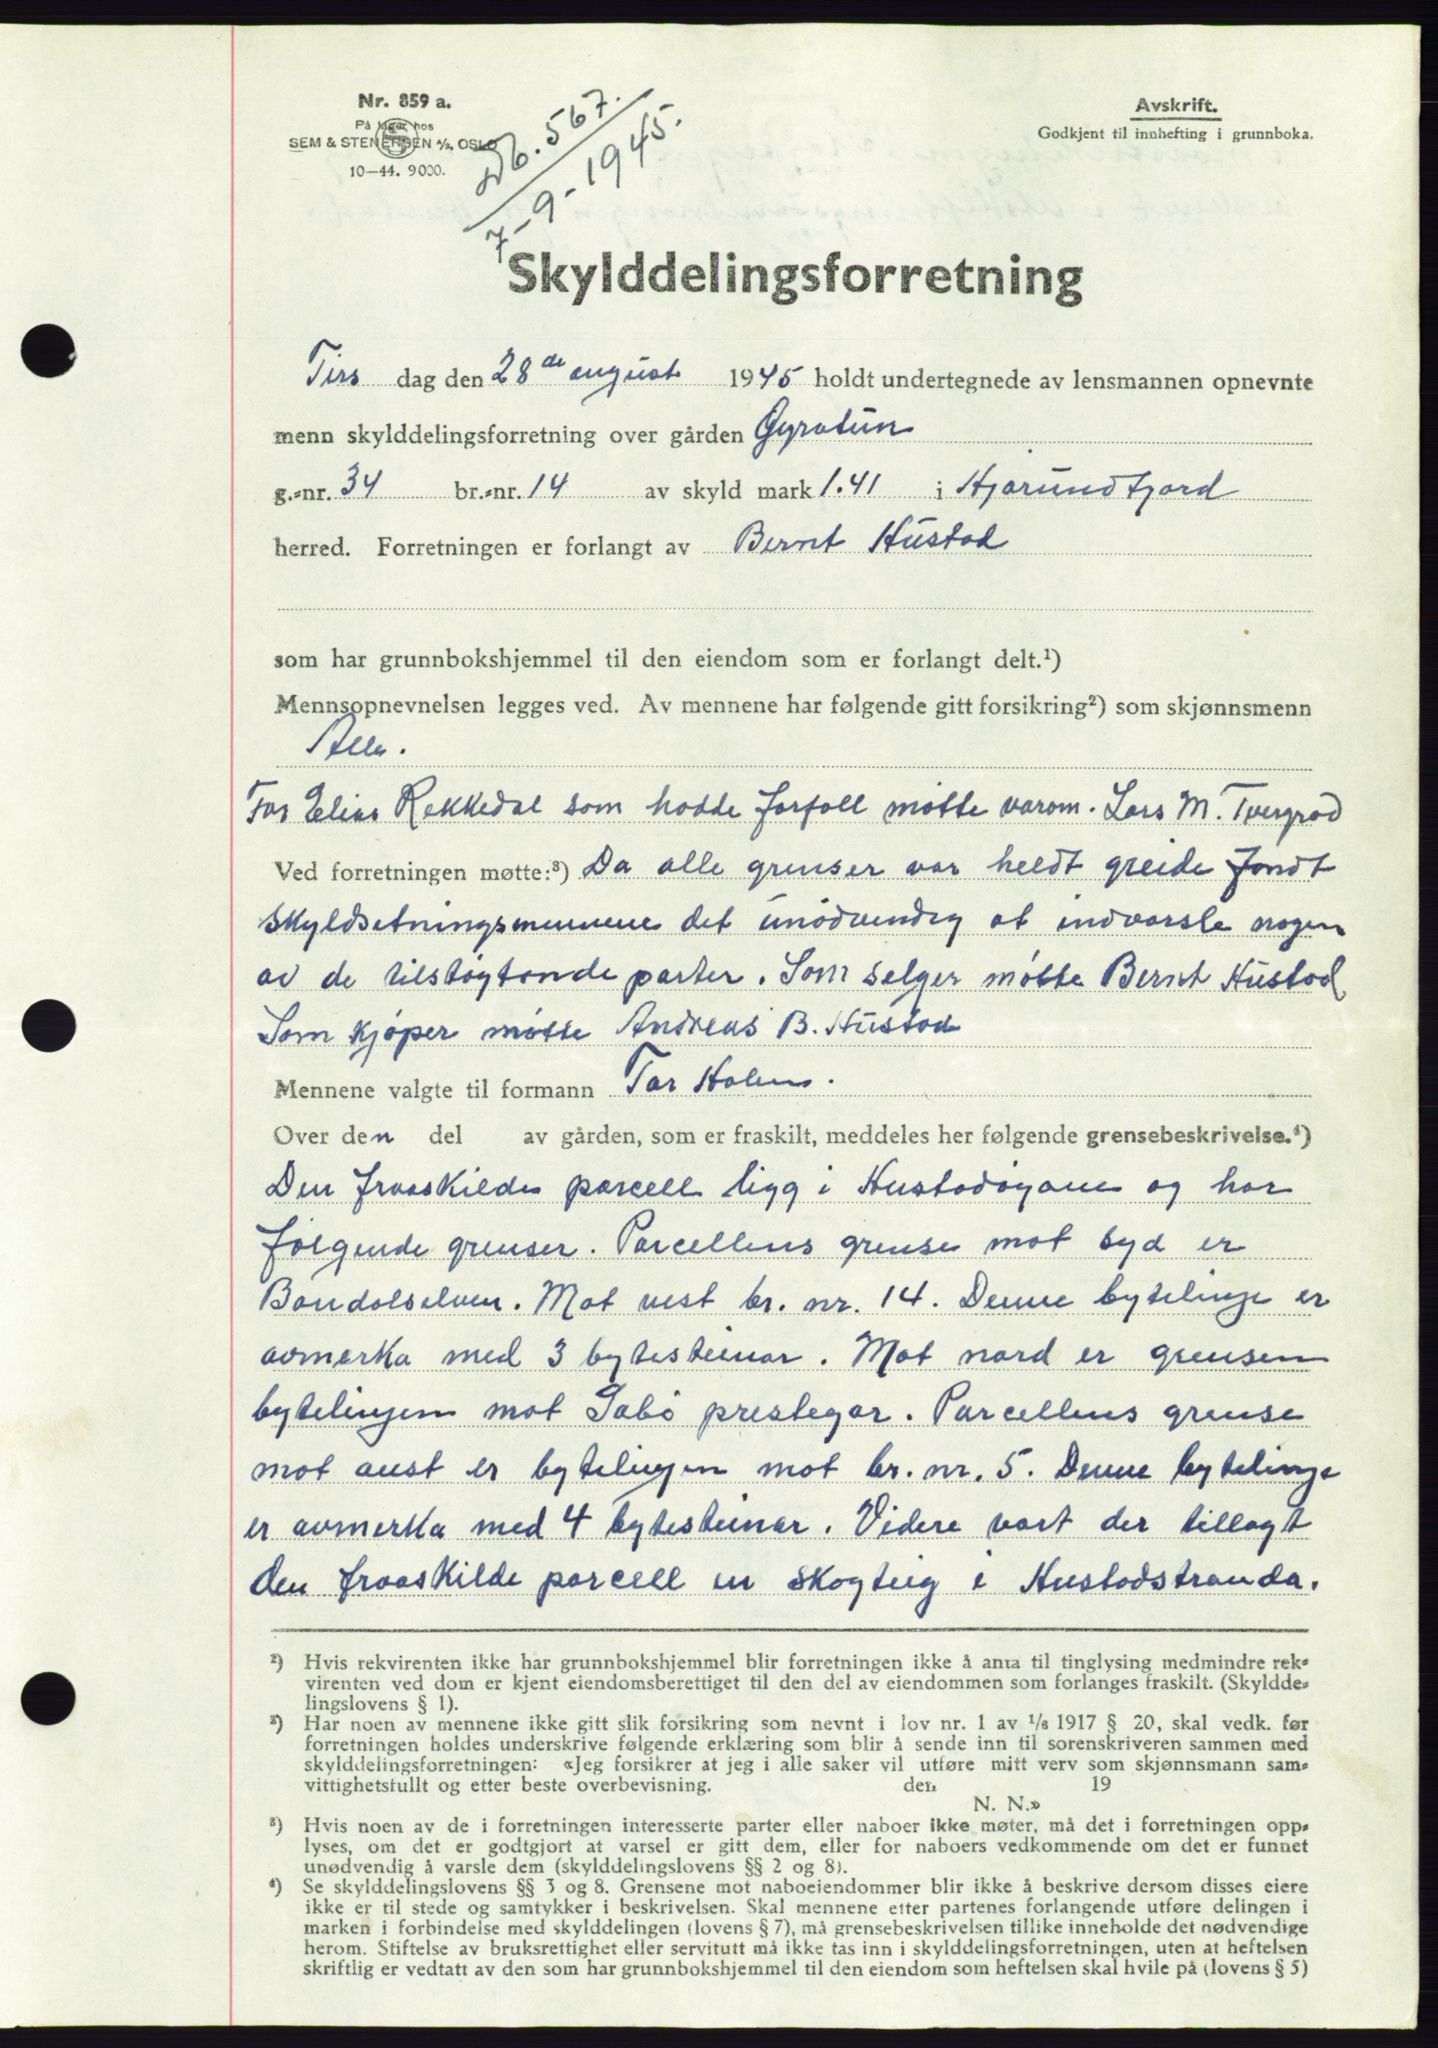 Nr. 859 a.
På lager hos
SEM & STENERSEN A/S, OSLO
10-44. 9000.
Db. 567.
7-9-1945.
Avskrift.
Godkjent til innhefting i grunnboka.
Skylddelingsforretning
Tirs dag den 28de august 1945 holdt undertegnede av lensmannen opnevnte
menn skylddelingsforretning over gården Øyratun
g.-nr. 34 br.-nr. 14 av skyld mark 1.41 i Hjørundfjord
herred. Forretningen er forlangt av Bernt Hustad
som har grunnbokshjemmel til den eiendom som er forlangt delt.¹)
Mennsopnevnelsen legges ved. Av mennene har følgende gitt forsikring²) som skjønnsmenn
Alle.
For Elias Rekkedal som hadde forfall møtte varam. Lars M. Tvergrod
Ved forretningen møtte:³) Da alle grenser var heldt greide fandt
skyldsetningsmennene det unødvendig at indvarsle nogen
av de tilstøytande parter. Som selger møtte Bernt Hustad
Som kjøper møtte Andreas B. Hustad
Mennene valgte til formann Tor Holen.
Over den del av gården, som er fraskilt, meddeles her følgende grensebeskrivelse.⁴)
Den fraaskilde parcell ligg i Hustadøyane og har
følgende grenser. Parcellens grense mot syd er
Bondalselven. Mot vest br. nr. 14. Denne bytelinje er
avmerka med 3 bytesteinar. Mot nord er grensen
bytelinjen mot Sæbø prestegar. Parcellens grense
mot aust er bytelinjen mot br. nr. 5. Denne bytelinje
er avmerka med 4 bytesteinar. Videre vart der tillagt
den fraaskilde parcell en skogteig i Hustadstranda.
²) Hvis rekvirenten ikke har grunnbokshjemmel blir forretningen ikke å anta til tinglysing medmindre rek-
virenten ved dom er kjent eiendomsberettiget til den del av eiendommen som forlanges fraskilt. (Skyldde-
lingslovens § 1).
²) Har noen av mennene ikke gitt slik forsikring som nevnt i lov nr. 1 av 1/6 1917 § 20, skal vedk. før
forretningen holdes underskrive følgende erklæring som blir å sende inn til sorenskriveren sammen med
skylddelingsforretningen: «Jeg forsikrer at jeg i alle saker vil utføre mitt verv som skjønnsmann sam-
vittighetsfullt og etter beste overbevisning. den 19
N. N.»
³) Hvis noen av de i forretningen interesserte parter eller naboer ikke møter, må det i forretningen opp-
lyses, om det er godtgjort at varsel er gitt dem, eller for naboers vedkommende om det er funnet
unødvendig å varsle dem (skylddelingslovens §§ 2 og 8).
⁴) Se skylddelingslovens §§ 3 og 8. Grensene mot naboeiendommer blir ikke å beskrive dersom disses eiere
ikke er til stede og samtykker i beskrivelsen. Skal mennene etter partenes forlangende utføre delingen i
marken i forbindelse med skylddelingen (lovens § 7), må grensebeskrivelsen tillike inneholde det nødvendige
herom. Stiftelse av bruksrettighet eller servitutt må ikke tas inn i skylddelingsforretningen, uten at heftelsen
skriftlig er vedtatt av den som har grunnbokshjemmel til den eiendom som heftelsen skal hvile på (lovens § 5)